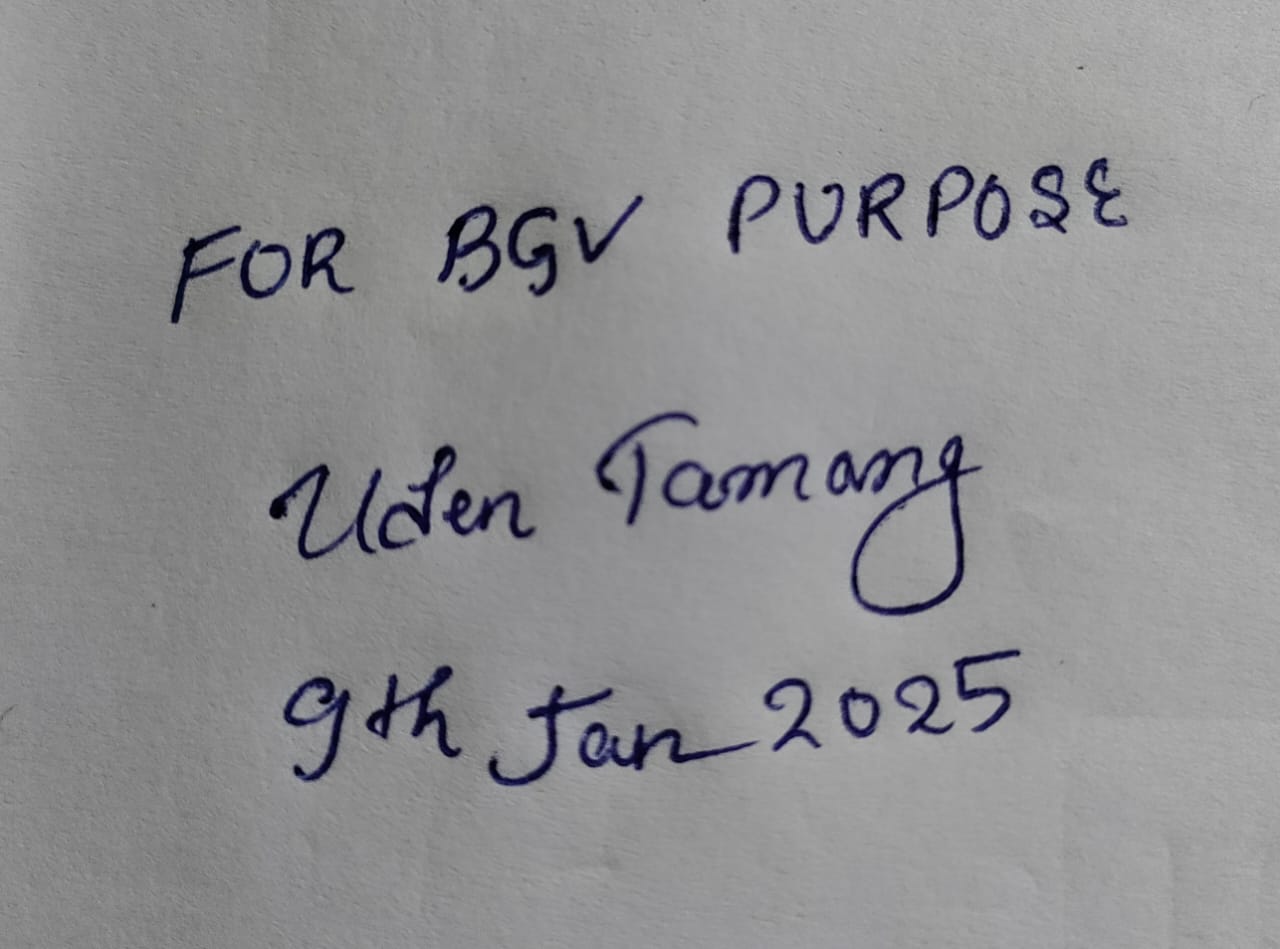 FOR BGV PURPOSE
Uden Tamang
9th Jan 2025